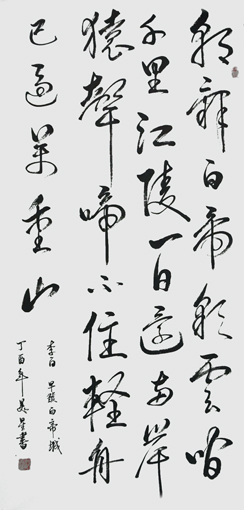 朝辭白帝彩雲間
千里江陵一日還兩岸
猿聲啼不住輕舟
已過萬重山
李白 早發白帝城
丁酉年書